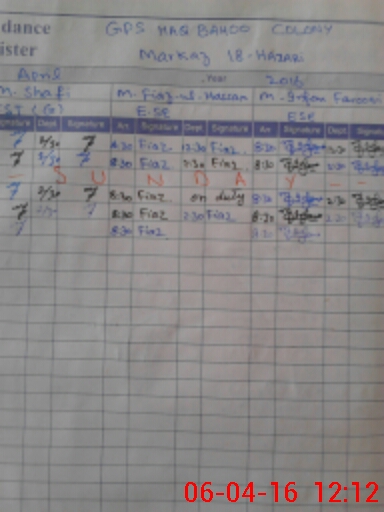 dance GPS HAQ BAHOO COLONY
ister Markaz 18-HAZARI
April Year 2016
M. Shafi M. Fiaz-ul-Hassan M.
EST (G) E.SE ESE
Signature Dept Signature Arr Signature Dept Signature Arr Signature Dept Signature
7 7 8:30 Fiaz 2:30 Fiaz 8:30
7 7 8:30 Fiaz 2:30 Fiaz 8:30 2:30
- S U N D A Y - -
7 2/30 7 8:30 Fiaz on duty 8:30 2:30
7 2/30 7 8:30 Fiaz 2:30 Fiaz 8:30 2:30
7 8:30 Fiaz 8:30
06-04-16 12:12